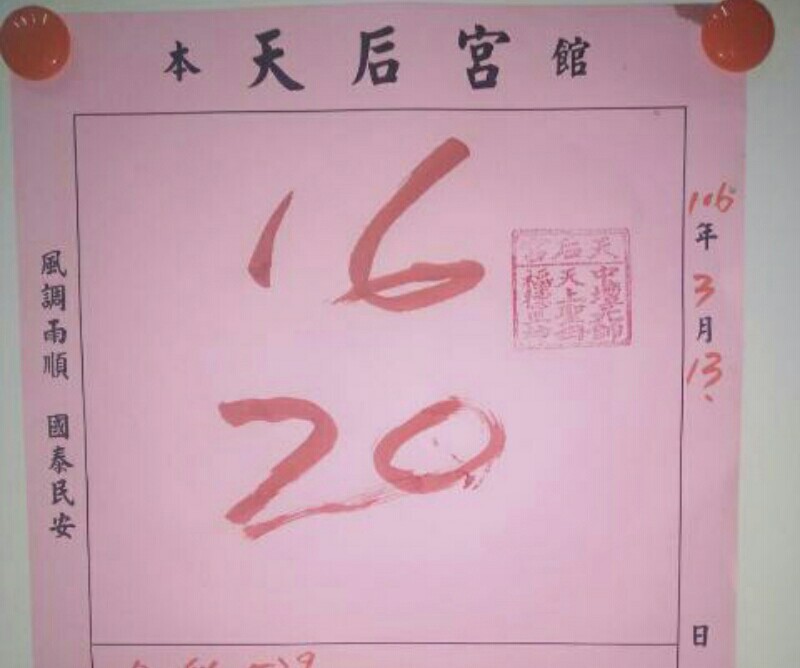 本天后宮館
106年3月13日
16
20
天后宮
中壇元帥
天上聖母
福德正神
風調雨順 國泰民安